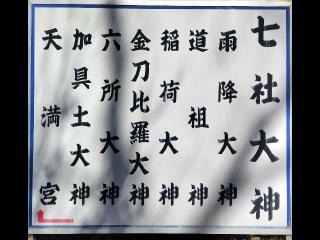 七社大神
雨降大神
道祖神
稲荷大神
金刀比羅大神
六所大神
加具土大神
天満宮